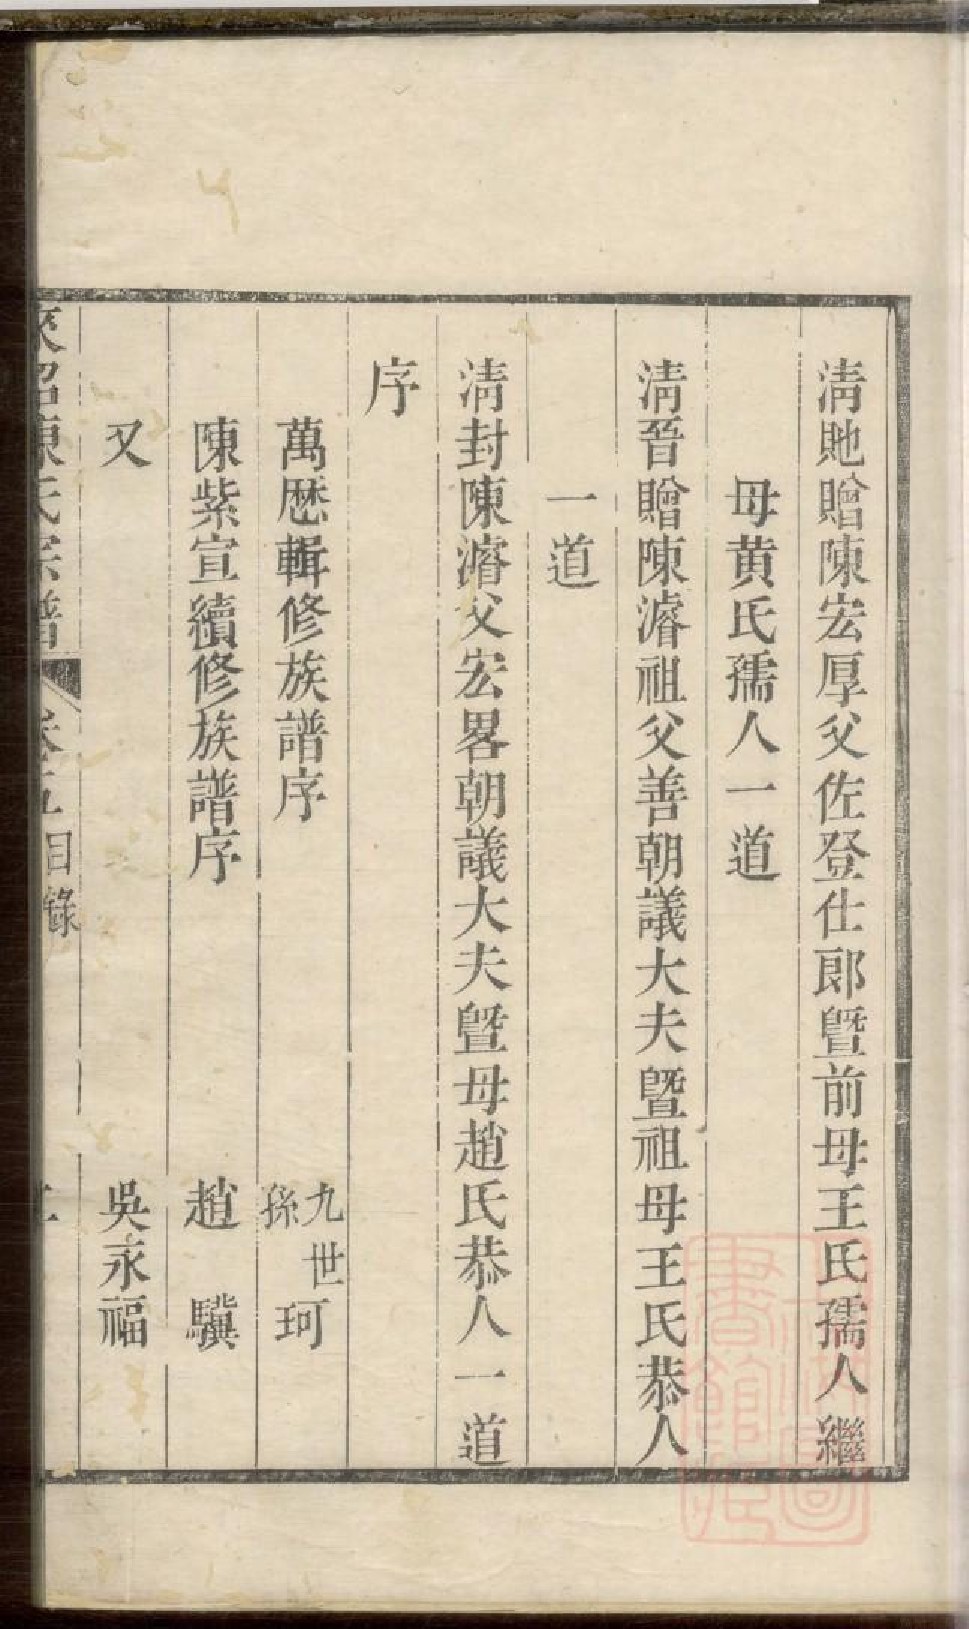 清貤贈陳宏厚父佐登仕郎曁前母王氏孺人繼
母黄氏孺人一道
清晉贈陳濬祖父善朝議大夫曁祖母王氏恭人
一道
清封陳濬父宏畧朝議大夫曁母趙氏恭人一道
序
萬厯輯修族譜序 九世孫 珂
陳紫宣續修族譜序 趙驥
又 吳永福
陳氏宗譜 卷五目錄